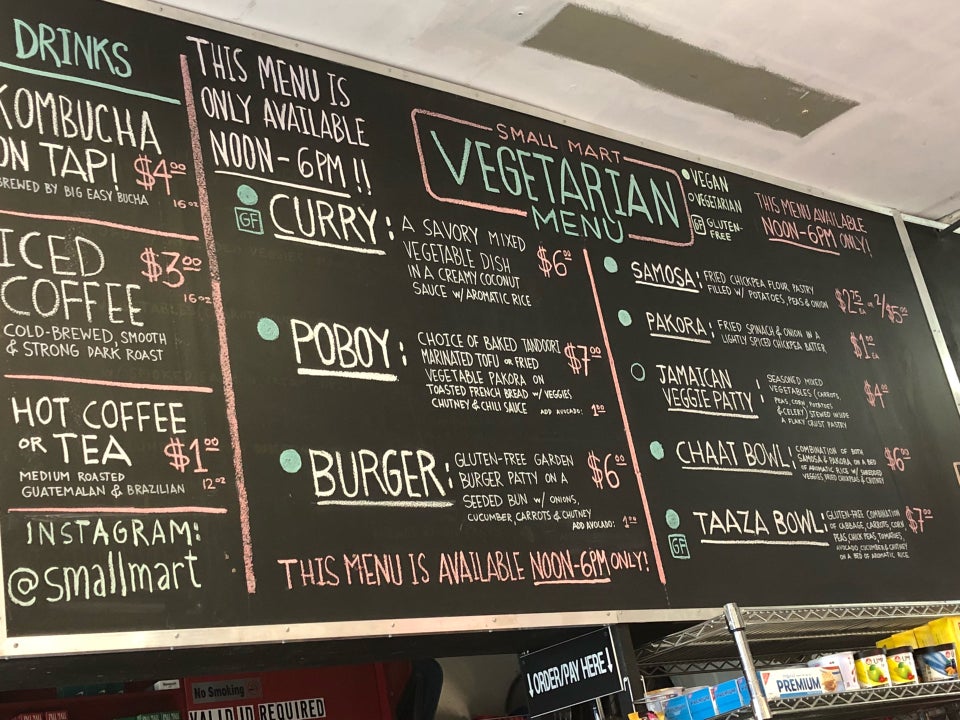 DRINKS
KOMBUCHA
ON TAP! $4.00
BREWED BY BIG EASY BUCHA 16 oz
ICED $3.00
COFFEE 16 oz
COLD-BREWED, SMOOTH
& STRONG DARK ROAST
HOT COFFEE
OR TEA $1.00
MEDIUM ROASTED 12 oz
GUATEMALAN & BRAZILIAN
INSTAGRAM:
@smallmart
THIS MENU IS
ONLY AVAILABLE
NOON-6PM!!
SMALL MART
VEGETARIAN
MENU
VEGAN
VEGETARIAN
GF GLUTEN-
FREE
THIS MENU AVAILABLE
NOON-6PM ONLY!
GF CURRY: A SAVORY MIXED $6.00
VEGETABLE DISH
IN A CREAMY COCONUT
SAUCE W/ AROMATIC RICE
POBOY: CHOICE OF BAKED TANDOORI $7.00
MARINATED TOFU OR FRIED
VEGETABLE PAKORA ON
TOASTED FRENCH BREAD W/ VEGGIES,
CHUTNEY & CHILI SAUCE ADD AVOCADO: 1.00
BURGER: GLUTEN-FREE GARDEN $6.00
BURGER PATTY ON A
SEEDED BUN W/ ONIONS,
CUCUMBER, CARROTS & CHUTNEY
ADD AVOCADO: 1.00
THIS MENU IS AVAILABLE NOON-6PM ONLY!
SAMOSA: FRIED CHICKPEA FLOUR PASTRY
FILLED W/ POTATOES, PEAS & ONION $2.75 EA OR 2/$5.00
PAKORA: FRIED SPINACH & ONION IN A
LIGHTLY SPICED CHICKPEA BATTER $1.00 EA
JAMAICAN
VEGGIE PATTY: SEASONED MIXED $4.00
VEGETABLES (CARROTS,
PEAS, CORN, POTATOES
& CELERY) STEWED INSIDE
A FLAKY CRUST PASTRY
CHAAT BOWL: COMBINATION OF BOTH $6.00
SAMOSA & PAKORA ON A BED
OF AROMATIC RICE W/ SHREDDED
VEGGIES, FRIED CHICKPEAS & CHUTNEY
GF TAAZA BOWL: GLUTEN-FREE COMBINATION $7.00
OF CABBAGE, CARROTS, CORN
PEAS, CHICK PEAS, TOMATOES,
AVOCADO, CUCUMBER & CHUTNEY
ON A BED OF AROMATIC RICE.
ORDER/PAY HERE
No Smoking
VALID ID REQUIRED
PREMIUM